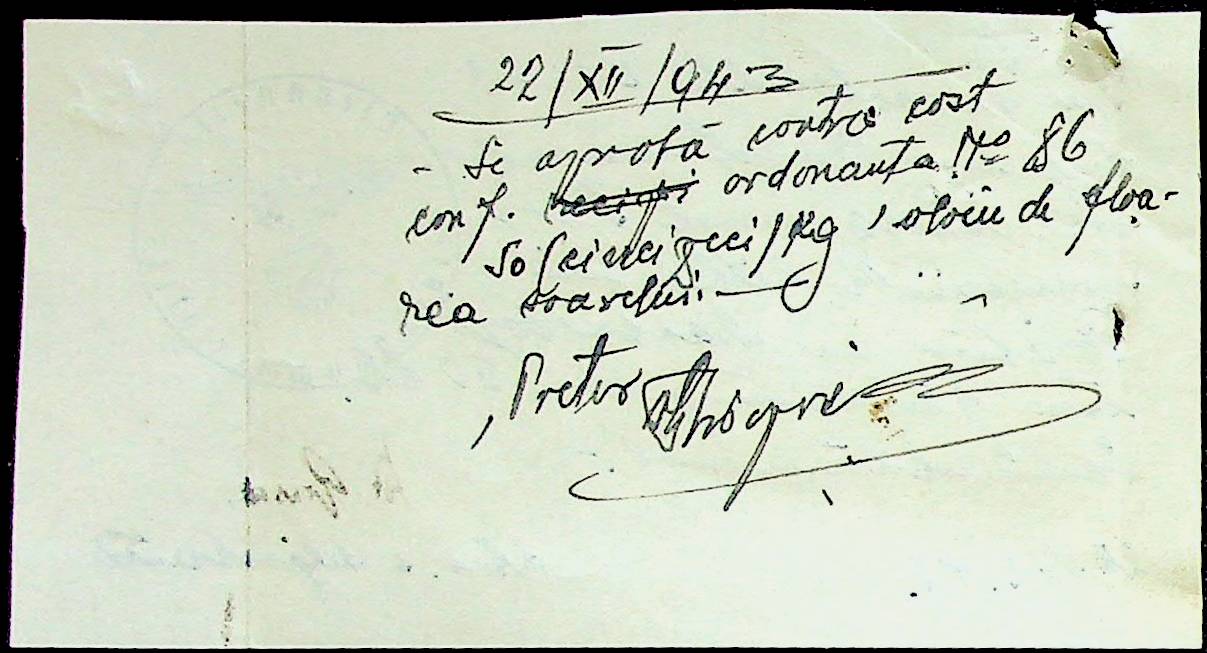 22/XII/943
- Se aprobă contra cost
conf. ordonanța No 86
50 (cinci zeci) kg, oloiu de floa-
rea soarelui.
Pretor